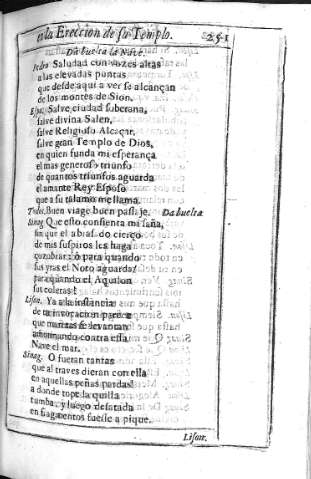 en la Ereccion de su Templo. 251
Da buelta la Nave.
Pedro Saludad con vozes altas
a las elevadas puntas
que desde aqui a ver se alcançan
de los montes de Sion.
Esp. Salve ciudad soberana,
salve divina Salen,
salve Religioso Alcaçar,
salve gran Templo de Dios,
en quien funda mi esperança
el mas generoso triunfo
de quantos triunfos aguarda
el amante Rey Esposo
que a su talamo me llama.
Todos. Buen viage buen passaje. Da buelta
Sinag. Que esto consienta mi saña,
sin que el abrasado cierço
de mis suspiros les haga
çozobrar? ò para quando
sus yras el Noto aguarda?
para quando el Aquilon
sus coleras?
Lison. Ya a la instancia
de tu invocacion parece
que maretas se levantan
contra essa
Nave el mar.
Sinag. O fueran tantas
que al traves dieran con ella
en aquellas peñas pardas!
a donde tope la quilla
tumba, y luego desatada
en fragmentos fuesse a pique.
Lison.